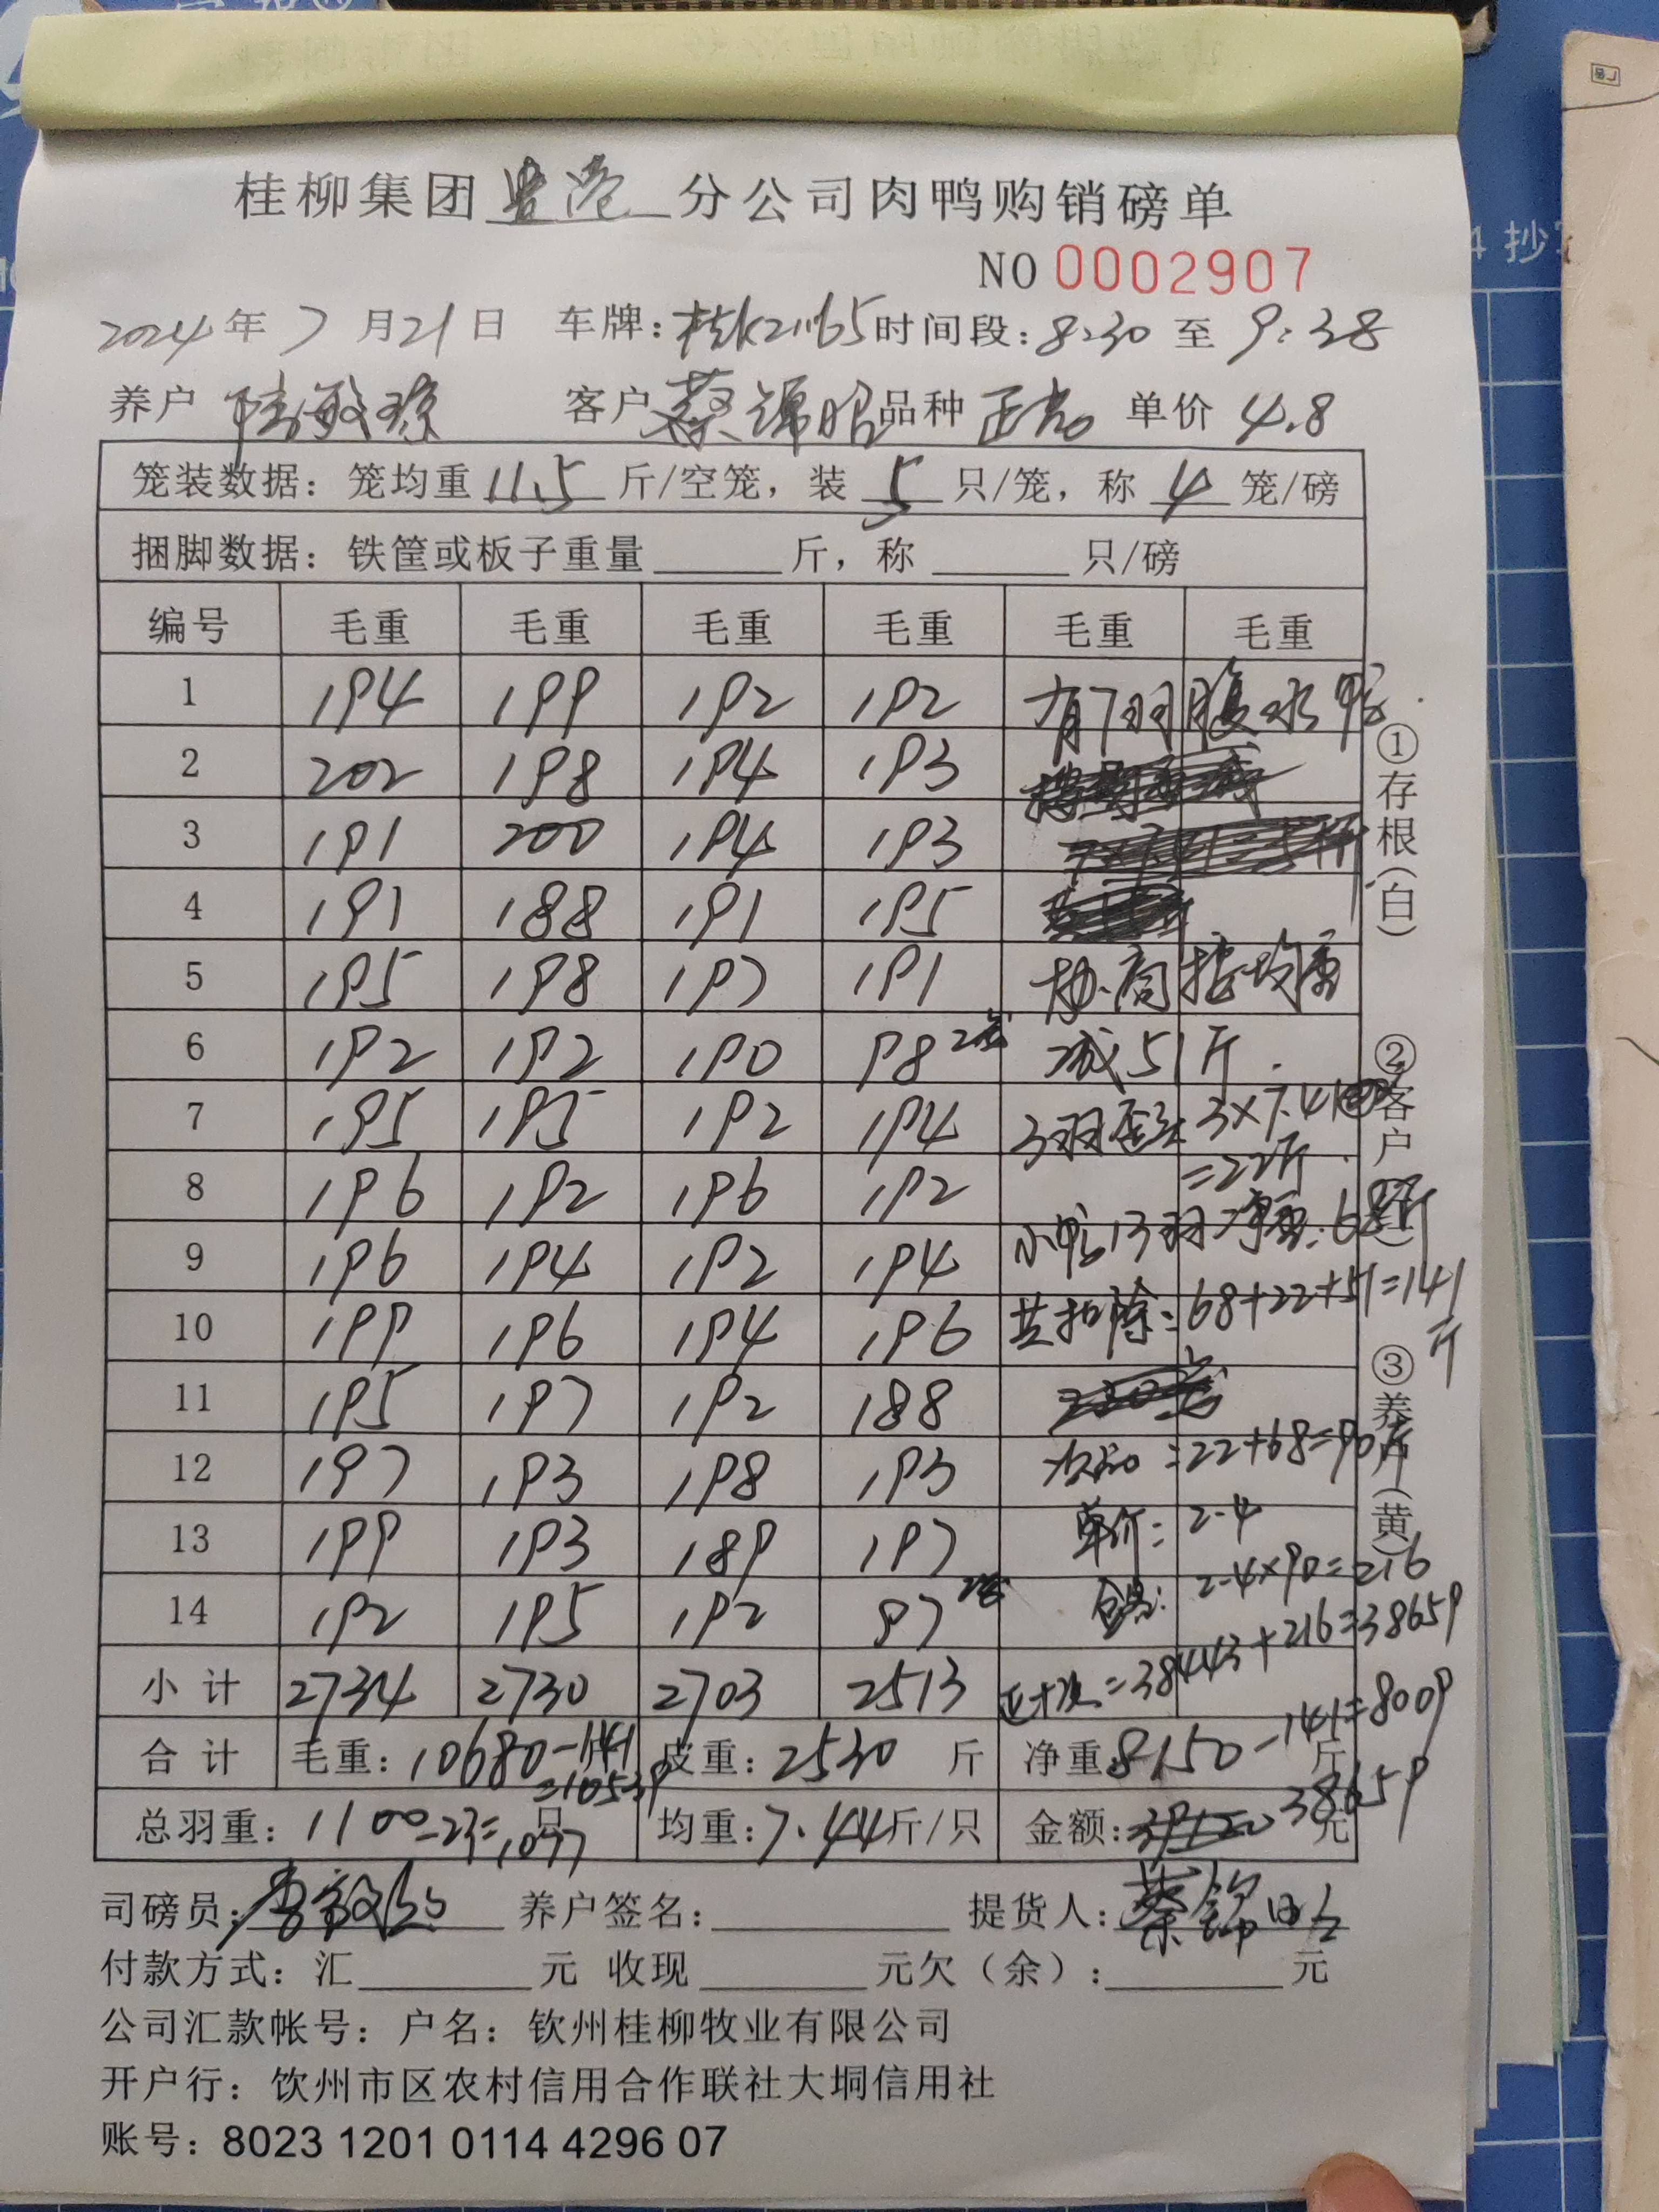 桂柳集团贵港分公司肉鸭购销磅单
NO 0002907
2024年7月21日 车牌:桂K21165 时间段:8:30 至 9:38
养户 陆敏琼 客户 蔡锦昭 品种 正常 单价 4.8
笼装数据:笼均重 11.5 斤/空笼,装 5 只/笼,称 4 笼/磅
捆脚数据:铁筐或板子重量 斤,称 只/磅
编号 毛重 毛重 毛重 毛重 毛重 毛重
1 194 199 192 192 有7羽腹水鸭.
2 202 198 194 193
3 191 200 194 193
4 191 188 191 195
5 195 198 197 191 协商按均重
6 192 192 190 98 2笼 减51斤.
7 195 195 192 194 3羽歪头 3×7.41
=22斤.
8 196 192 196 192
9 196 194 192 194 小鸭13羽净重:68斤
10 199 196 194 196 共扣除:68+22+51=141斤
11 195 197 192 188
12 197 193 198 193 次品:22+68=90斤
13 199 193 189 197 单价:2.4
14 192 195 192 97 2笼 金额:2.4×90=216
小计 2734 2730 2703 2513 正+次=38443+216=38659
合计 毛重:10680-141=10539 皮重:2530 斤 净重:8150-141=8009 斤
总羽重:1100-23=1077 只 均重:7.44斤/只 金额:38659 元
司磅员: 养户签名: 提货人:蔡锦昭
付款方式:汇 元 收现 元欠(余): 元
公司汇款帐号:户名:钦州桂柳牧业有限公司
开户行:饮州市区农村信用合作联社大垌信用社
账号:8023 1201 0114 4296 07
①存根(白) ②客户 ③养户(黄)